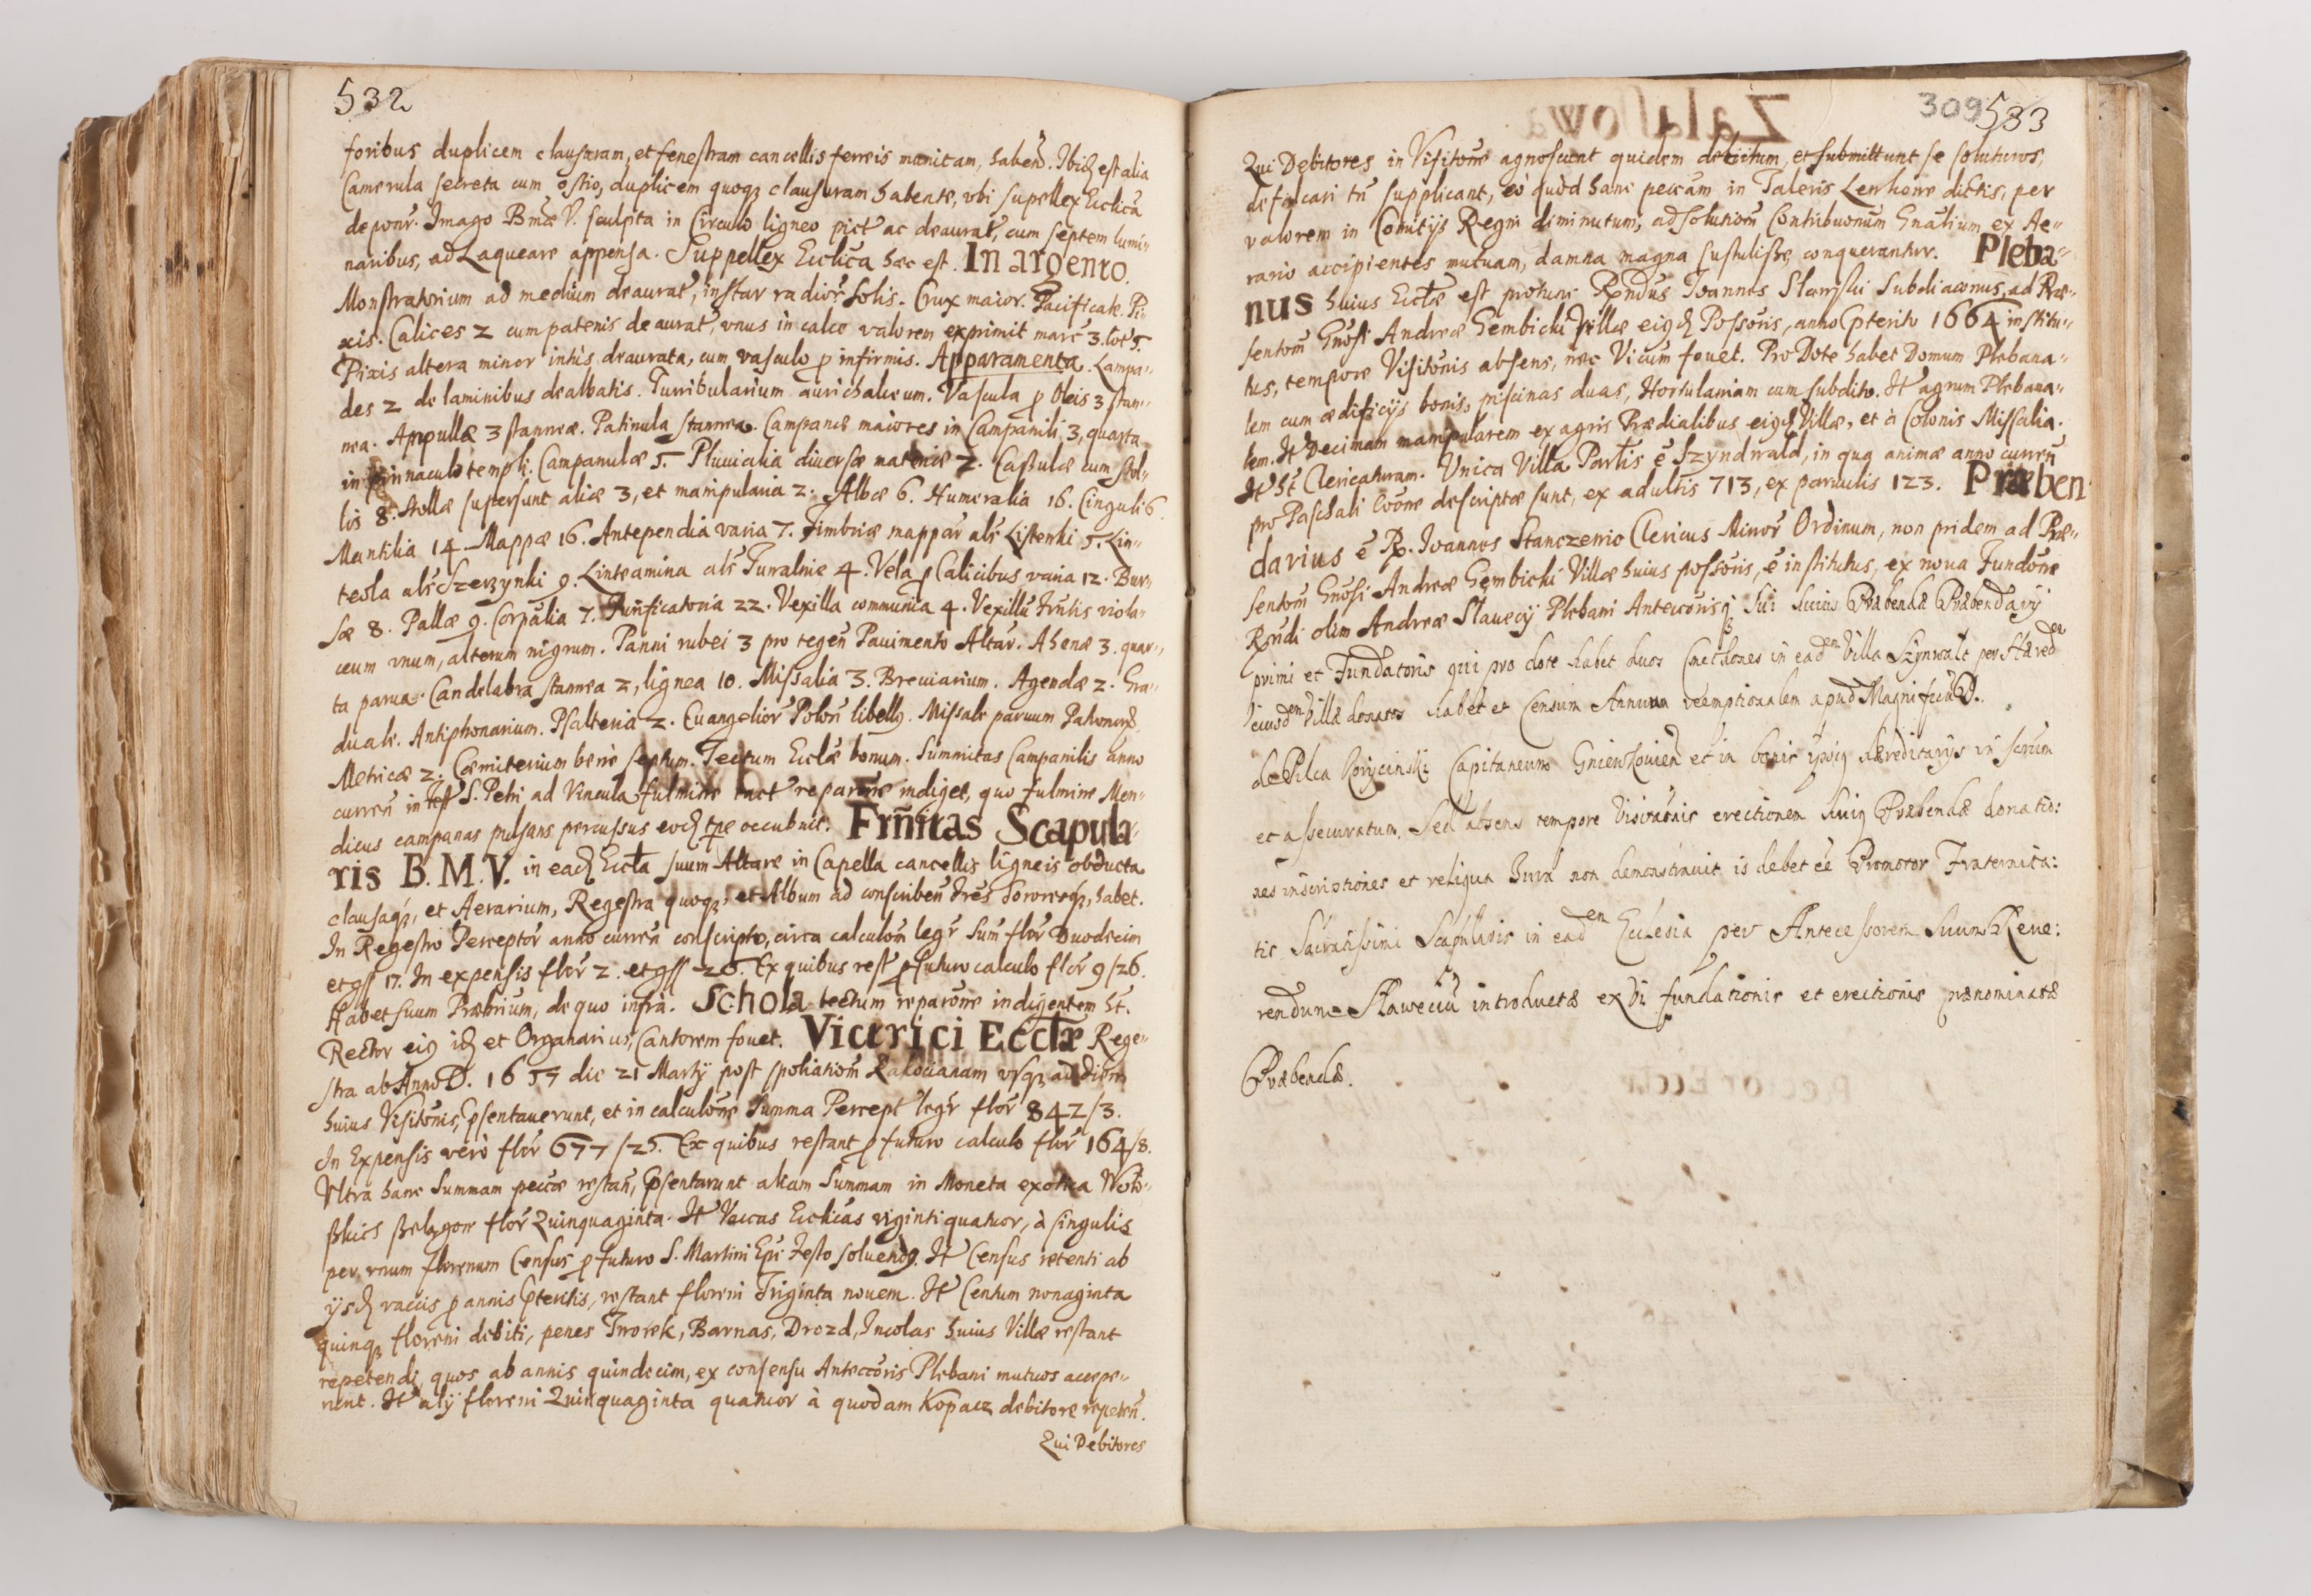 532
foribus duplicem clausuram, et fenestram cancellis ferreis munitam, haben̄. Ibid est alia
Camerula secreta cum ostio, duplicem quoq3 clausuram habente, vbi supellex Ecclīca
deponr̄. Imago Bmæ V. sculpta in Circulo ligneo pict ac deaurat, cum septem lumi-
naribus, ad Laqueare appensa. Suppellex Ecclīca hæc est. In argento.
Monstratorium ad medium deaurat, instar radior solis. Crux maior. Pacificale. Pi-
xis. Calices 2 cum patenis deaurat, vnus in calce valorem exprimit marc 3. lot 5.
Pixis altera minor intùs deaurata, cum vasculo p infirmis. Apparamenta. Lampa-
des 2 de laminibus dealbatis. Turribularium aurichalceum. Vascula p Oleis 3 stan-
nea. Ampullæ 3 stanneæ. Patinula stannea. Campanæ maiores in Campanili 3, quarta
in pinnaculo templi. Campanulæ 5. Pluuialia diuersæ materiæ 2. Casulæ cum stol-
lis 8. Stollæ supersunt aliæ 3, et manipularia 2. Albæ 6. Humeralia 16. Cinguli 6.
Mantilia 14. Mappæ 16. Antependia varia 7. Fimbriæ mappar als Listewki 5. Lin-
teola als Szerzynki 9. Linteamina als Tuwalnie 4. Vela p Calicibus varia 12. Bur-
sæ 8. Pallæ 9. Corpalia 7. Purificatoria 22. Vexilla communia 4. Vexillū Frnlis viola-
ceum vnum, alterum nigrum. Panni rubei 3 pro tegen̄ Pauimento Altar. Ahenæ 3. quar-
ta parua. Candelabra stannea 2, lignea 10. Missalia 3. Breuiarium. Agendæ 2. Gra-
duale. Antiphonarium. Psalteria 2. Euangelior Polon̄ libell9. Missale paruum Patronor
Metricæ 2. Cæmiterium bene septum. Tectum Ecclæ bonum. Summitas Campanilis anno
curren̄ in fest S. Petri ad Vincula fulmine tact reparōne indiget, quo fulmine Men-
dicus campanas pulsans percussus eod tpe occubuit. Frn̄itas Scapula-
ris B. M. V. in ead Eccla suum Altare in Capella cancellis ligneis obducta
clausaq3, et Aerarium, Regestra quoq3, et Album ad conscriben̄ Frēs Sororesq3, habet.
In Regestro Perceptor anno curren̄ conscripto, circa calculōm legr Sum̄ flor Duodecim
et gss 17. In expensis flor 2. et gss 20. Ex quibus rest p futuro calculo flor 9/26.
Habet suum Præbrium, de quo infrà. Schola tectum reparōne indigentem ht.
Rector ei9 id et Organarius, Cantorem fouet. Vitrici Ecclæ Rege-
stra ab Anno D. 1657 die 21 Martij post spoliatiōm Rakocianam vsq3 ad diem
huius Visitōnis, psentauerunt, et in calculōne Summa Percept legr flor 842/3.
In Expensis verò flor 677/25. Ex quibus restant p futuro calculo flor 164/8.
Vltra hanc Summam pecūæ restan̄, psentarunt aliam Summam in Moneta exotica Woło-
per vnum florenum Census p futuro S. Martini Epi Festo soluend9. It Census retenti ab
ijsd vaccis p annis pteritis, restant floreni Triginta nouem. It Centum nonaginta
quinq3 floreni debiti, penes Tworek, Barnas, Drozd, Incolas huius Villæ restant
repetendi, quos ab annis quindecim, ex consensu Antecōris Plebani mutuos accepe-
runt. It alij floreni Quinquaginta quatuor à quodam Kopacz debitore repeten̄.
Qui Debitores
309 533
Qui Debitores in Visitōne agnoscunt quidem debitum, et submittunt se soluturos,
defalcari tn̄ supplicant, eò quòd hanc pecūam in Taleris Lewkowe dictis, per
valorem in Comitijs Regni diminutum, ad solutiōm Contribuonum Gnalium, ex Ae-
rario accipientes mutuam, damna magna sustulisse, conquerantur. Pleba-
nus huius Ecclæ est protunc Rndus Joannes Sławski Subdiaconus, ad Præ-
sentōm Gnosi Andreæ Gembicki Villæ ei9d Possoris, anno pterito 1664 institu-
tus, tempore Visitōnis absens, nec Vicūm fouet. Pro Dote habet Domum Plebana-
lem cum ædificijs bonis, piscinas duas, Hortulaniam cum subdito. It agrum Plebana-
lem. It Decimam manipularem ex agris Prædialibus ei9d Villæ, et à Colonis Missalia.
It ht Clericaturam. Vnica Villa Partis ē Szyndwald, in qua animæ anno curren̄
pro Paschali Cōone descriptæ sunt, ex adultis 713, ex paruulis 123. Præben-
darius ē Rx. Joannes Stanczewic Clericus Minor Ordinum, non pridem ad Præ-
sentōm Gnosi Andreæ Gembicki Villæ huius possoris, ē institutus, ex noua Fundōne
Rndi olim Andreæ Slawecij Plebani Antecōrisq3 sui huius Præbendæ Præbendarij
primi et Fundatoris qui pro dote habet duos Cmethones in eadem Villa Szynwalt per Hæredem
eiusdem Villæ donatos habet et Censum Annuum reemptionalem apud Magnificū D.
de Pilca Korycinski Capitaneum Gniewkouien̄ et in bonis ipsi9 hæreditarijs in scriptum
et assecuratum. Sed absens tempore Visitatōnis erectionem hui9 Præbendæ donatio:
nes inscriptiones et reliqua Jura non demonstrauit is debet ēe Promotor Fraternita:
tis Sacratissimi Scapularis in eadem Ecclesia per Antecessorem Suum Reue:
rendum Slaweciū introductæ ex vi fundationis et erectionis prænominatæ
Præbendæ.